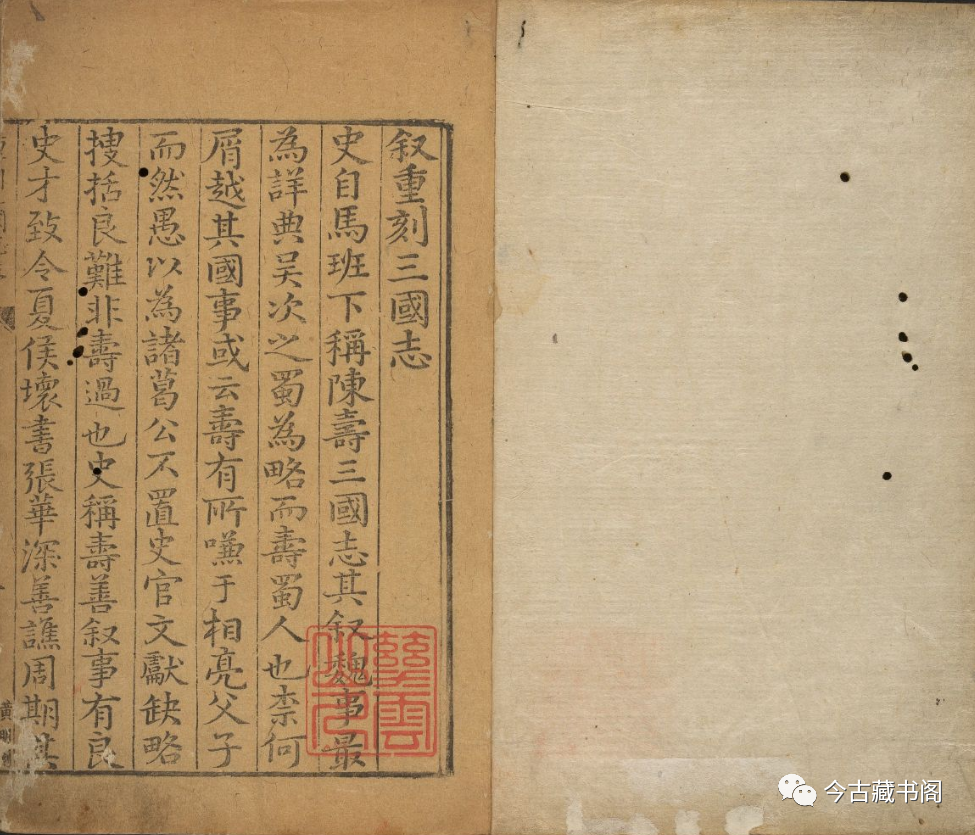 叙重刻三國志
史自馬班下稱陳壽三國志其叙魏事最
為詳典吳次之蜀為略而壽蜀人也柰何
屑越其國事或云壽有所嗛于相亮父子
而然愚以為諸葛公不置史官文獻缺略
捜括良難非壽過也史稱壽善叙事有良
史才致令夏侯壞書張華深善譙周期其
今古藏书阁